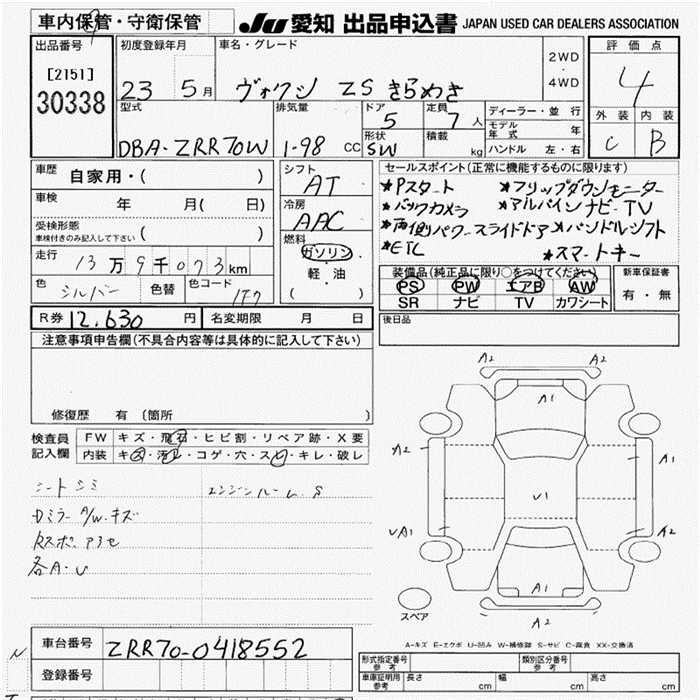 車内保管・守衛保管
JU 愛知 出品申込書 JAPAN USED CAR DEALERS ASSOCIATION
出品番号
[2151]
30338
初度登録年月
23 5月
車名・グレード
ヴォクシ ZS きらめき
2WD
・
4WD
評価点
4
外装 内装
C B
型式
DBA-ZRR70W
排気量
1-98 CC
ドア
5
定員
7人
形状
SW
積載
kg
ディーラー・並行
モデル年式 年
ハンドル 左・右
車歴
自家用・( )
車検
年 月( 日)
受検形態
車検付きのみ記入して下さい ( )
走行
13万9千073km
色
シルバー
色替
色コード
1F7
シフト
AT
冷房
AAC
燃料
ガソリン
・
軽・油
( )
セールスポイント(正常に機能するものに限ります)
★Pスタート ★フリップダウンモニター
★バックカメラ ★アルパインナビ・TV
★両側パワースライドドア ★パンドルシフト
★ETC ★スマートキー
装備品(純正品に限り○をつけてください)
PS PW エアB AW
SR ナビ TV カワシート
新車保証書
有・無
R券 12,630円
名変期限 月 日
後日品
注意事項申告欄(不具合内容等は具体的に記入して下さい)
修復歴 有 〔箇所 〕
検査員
記入欄
FW キズ・飛石・ヒビ割・リペア跡・X要
内装 キズ・汚レ・コゲ・穴・スレ・キレ・破レ
シートシミ エンジンルーム.S
Dミラー A/W.キズ
Rスポ.アセ
各A.U
A2 A2
A1
A2 A1
U1
UA1 A2
A1
A2
スペア
A-キズ E-エクボ U-凹み W-補修跡 S-サビ C-腐食 XX-交換済
車台番号 ZRR70-0418552
登録番号
N
形式指定番号
参考
類別区分番号
参考
車庫証明
参考
長さ cm 幅 cm 高さ cm